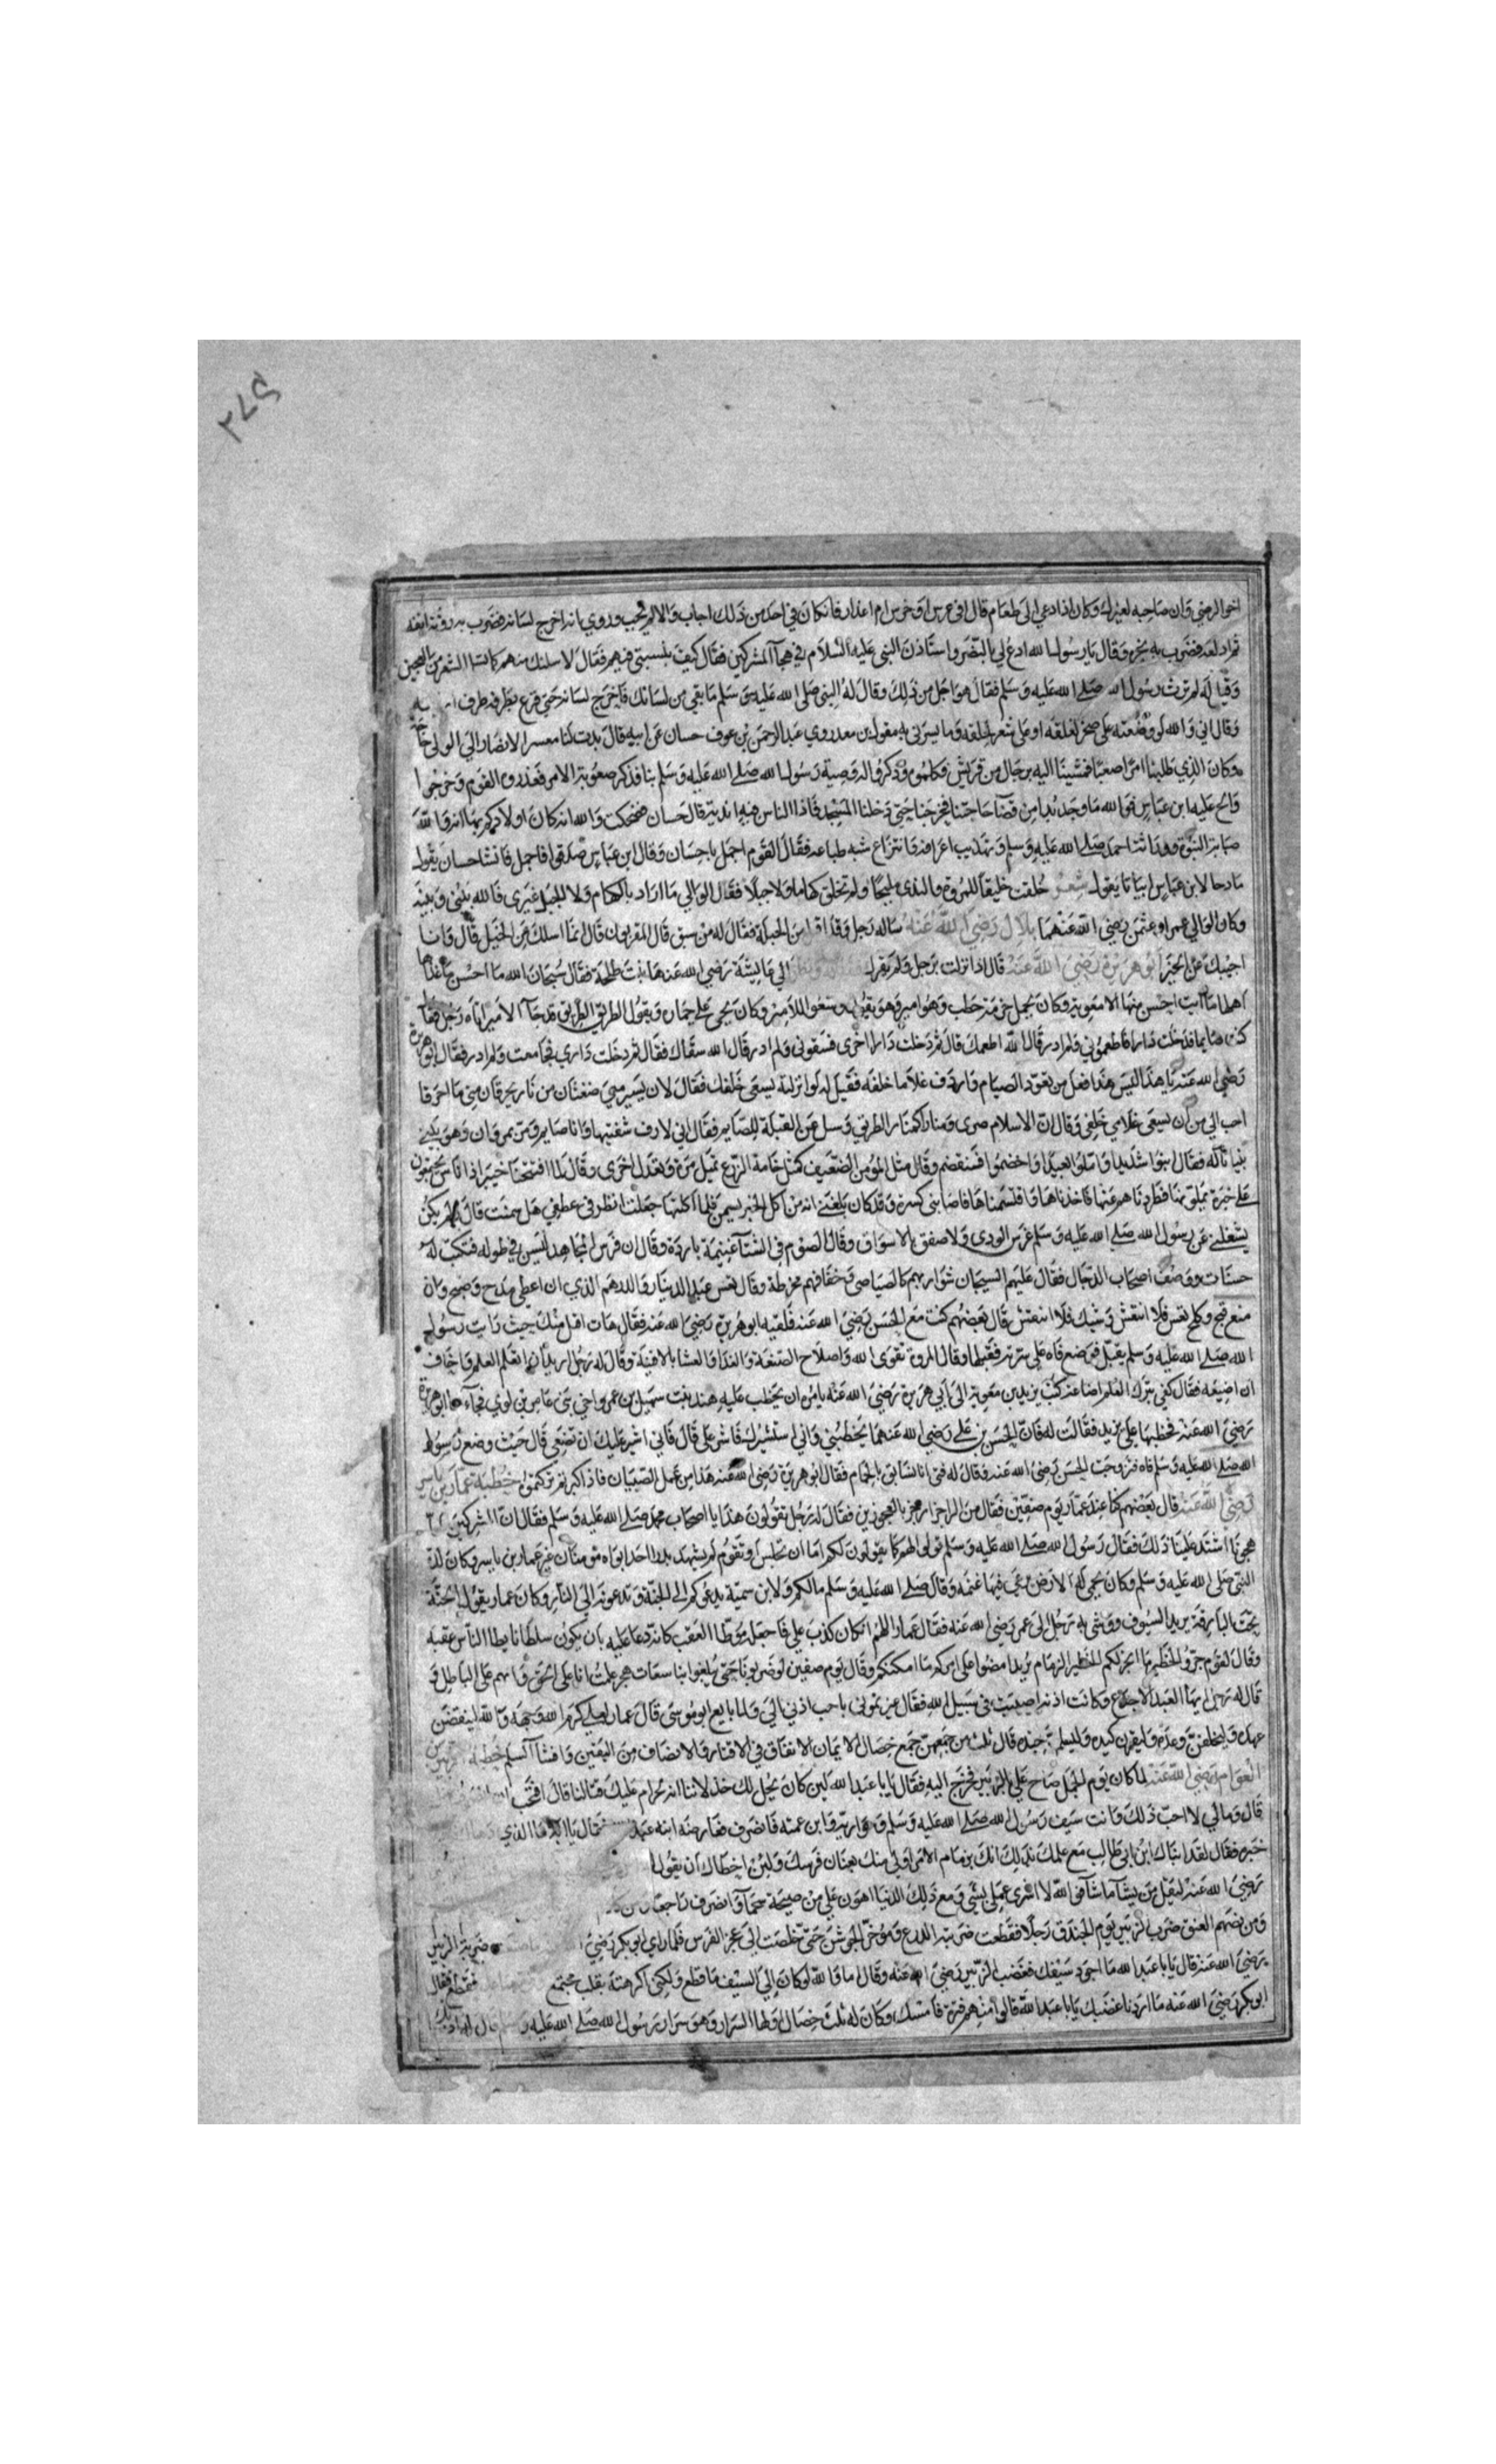 ٢٧٥
اخو الرضي وان صاحبه لعنزلة وكان اذا دعي الى طعام قال افي عرس ام خرس ام اعذار فان كان في احد من ذلك اجاب والا لم يجب وروي انه اخرج لسانه فضرب به روثة انفه
ثم ادلعه فضرب به نحره وقال يا رسول الله ادع لي بالنصر واستاذن النبي عليه السلام في هجاء المشركين فقال كيف بنسبتي فيهم فقال لاسلنك منهم كما تسل الشعرة من العجين
وقيل له لم ترث رسول الله صلى الله عليه وسلم فقال هو اجل من ذلك وقال له النبي صلى الله عليه وسلم ما بقي من لسانك فاخرج لسانه حتى قرع بطرفه طرف
وقال اني والله لو وضعته على صخر لفلقه او على شعر لحلقه وما يسرني به مقول من معد وروي عبد الرحمن بن عوف حسان عن ابيه قال بدت لنا معسر الانصار الى الوالي حاجة
وكان الذي طلبنا امرا صعبا فمشينا اليه برجال من قريش فكلموه وذكروا له وصية رسول الله صلى الله عليه وسلم بنا فذكر صعوبة الامر فعذروه القوم وخرجوا
والح عليه ابن عباس فوالله ما وجد بدا من قضاء حاجتنا فخرجنا حتى دخلنا المسجد فاذا الناس فيه اندية قال حسان فضحكت والله انه كان اولاكم بها انه والله
صبابة النبوة ووراثة احمد صلى الله عليه وسلم وتهذيب اعراقه وانتزاع شبه طباعه فقال القوم اجمل يا حسان وقال ابن عباس صدقوا فاجمل فانشا حسان يقول
مادحا لابن عباس ابياتا يقول شعر خلقت خليقا للمروة والندى مليحا ولم تخلق كهاما ولا جبلا فقال الوالي ما اراد بالكهام ولا الجبل غيري فالله بيني وبينه
وكان الوالي عمر او عثمن رضي الله عنهما بلال رضي الله عنه ساله رجل وقد اقبل من الحلبة فقال له من سبق قال المقربون قال انما اسلك عن الخيل قال وانا
اجيبك عن الخير ابو هريرة رضي الله عنه قال اذا نزلت برجل ولم يقرك الى عايشة رضي الله عنها بنت طلحة فقال سبحان الله ما احسن ما غذاها
اهلها ما رايت احسن منها الا معوية وكان يحمل حزمة حطب وهو امير وهو يقول وسعوا للامير وكان يجي على حمار ويقول الطريق الطريق قد جاء الامير اتاه رجل فقال
كنت صايما فدخلت دارا فاطعموني ولم ادر قال الله اطعمك قال ثم دخلت دارا اخرى فسقوني ولم ادر قال الله سقاك فقال ثم دخلت داري فجامعت ولم ادر فقال ابو هريرة
رضي الله عنه يا هذا ليس هذا فعل من تعود الصيام واردف غلاما خلفه فقيل له لو انزلته يسعى خلفك فقال لان يسير معي ضغثان من نار يحرقان مني ما احرقا
احب الي من ان يسعى غلامي خلفي وقال ان الاسلام صوى ومنارا كمنار الطريق وسل عن القبلة للصايم فقال اني لارف شفتيها وانا صايم ومر بمروان وهو يبني
بنيانا له فقال ابنوا شديدا واملوا بعيدا واخضموا فسنقضم وقال مثل المؤمن الضعيف كمثل خامة الزرع تميل مرة وتعتدل اخرى وقال لما افتتحنا خيبر اذا اناس مجتمعون
على خبزة يملوقنها فطردناهم عنها فاخذناها واقتسمناها فاصابني كسرة وقد كان بلغني انه من اكل الخبز يسمن فلما اكلتها جعلت انظر في عطفي هل سمنت قال ولم يكن
يشغلني عن رسول الله صلى الله عليه وسلم غرس الودي ولا صفق بالاسواق وقال الصوم في الشتاء غنيمة باردة وقال ان فرس المجاهد ليستن في طوله فتكتب له
حسنات ووصف اصحاب الدجال فقال عليهم السيجان شواربهم كالصياصي وخفافهم مخرطة وقال تعس عبد الدينار والدرهم الذي ان اعطي مدح وضبح وان
منع قبح وكلح تعس فلا انتعش وشيك فلا انتقش قال بعضهم كنت مع الحسن رضي الله عنه فلقيه ابو هريرة رضي الله عنه فقال هات اقبل منك حيث رايت رسول
الله صلى الله عليه وسلم يقبل فوضع فاه على سرته فقبلها وقال المروة تقوى الله واصلاح الصنعة والغداء والعشاء بالافنية وقال له رجل اريد ان اتعلم العلم واخاف
ان اضيعه فقال كفى بترك العلم اضاعة كتب يزيد بن معوية الى ابي هريرة رضي الله عنه يامره ان يخطب عليه هند بنت سهيل بن عمرو اخي بني عامر بن لوي فجاءها ابو هريرة
رضي الله عنه فخطبها على يزيد فقالت له فان الحسن بن علي رضي الله عنهما يخطبني واني استشيرك فاشر علي قال فاني اشير عليك ان تضعي قال حيث وضع رسول
الله صلى الله عليه وسلم فاه فتزوجت الحسن رضي الله عنه وقال له فتى انا لتسابق بالحمام فقال ابو هريرة رضي الله عنه هذا من عمل الصبيان فاذا كبرتم تركتموه خطبة عمار بن ياسر
رضي الله عنه قال بعضهم كنا عند عمار يوم صفين فقال من الراجز ارجز بالعجوزين فقال له رجل تقولون هذا يا اصحاب محمد صلى الله عليه وسلم فقال ان المشركين
هجونا اشتد علينا ذلك فقال رسول الله صلى الله عليه وسلم قولوا لهم كما يقولون لكم اما ان تجلس او تقوم لم يشهد بدرا احد ابواه مومنان غير عمار بن ياسر وكان لدة
النبي صلى الله عليه وسلم وكان يجي الى الارض يرعى فيها غنمه وقال صلى الله عليه وسلم مالكم ولابن سمية يدعوكم الى الجنة وتدعونه الى النار وكان عمار يقول الجنة
تحت البارقة يريد السيوف ووشى به رجل الى عمر رضي الله عنه فقال عمار اللهم ان كان كذب علي فاجعله موطأ العقب كانه دعا عليه بان يكون سلطانا يطا الناس عقبه
وقال لقوم جروا الخطير ما انجر لكم الخطير الزمام يريد امضوا على امركم ما امكنكم وقال يوم صفين لو ضربونا حتى يبلغوا بنا سعفات هجر علمت انا على الحق وانهم على الباطل
قال له رجل ايها العبد الاجدع وكانت اذنه اصيبت في سبيل الله فقال عيرتموني باحب اذني الي ولما بايع ابو موسى قال عمار لعلي كرم الله وجهه والله لينقضن
عهده وليخلفن وعده وليفرن كيده وليسلمن جنده قال ثلث من جمعهن جمع خصال الايمان الانفاق في الاقتار والانصاف من النفس وافشاء السلم خطبة الزبير بن
العوام رضي الله عنه لما كان يوم الجمل صاح علي بالزبير فخرج اليه فقال يا ابا عبد الله لين كان يحل لك خذلاننا انه لحرام عليك قتالنا قال افتحب
قال وما لي لا احب ذلك وانت سيف رسول الله صلى الله عليه وسلم وحواريه وابن عمته فانصرف فعارضه ابنه عبد فقال يا ابه ما الذي
خبره فقال لقد انباك ابن ابي طالب مع علمك بذلك انك بزمام الامر اولى منك بعنان فرسك ولئن اخطاك ان يقول
رضي الله عنه ليقل من يشاء ما شاء فوالله لا اشري عملي بشي ومع ذلك الدنيا اهون علي من صيحة حما وانصرف راجعا
ومن بعضهم العنق ضرب الزبير يوم الخندق رجلا فقطعت ضربته الدرع وموخر الجوشن حتى خلصت الى عجز الفرس فلما راى ابو بكر رضي ضربة الزبير
رضي الله عنه قال يا ابا عبد الله ما اجود سيفك فغضب الزبير رضي الله عنه وقال ما والله لو كان الي السيف ما قطع ولكني اكرهته بقلب مجتمع فقطع فقال
ابو بكر رضي الله عنه ما اردنا غضبك يا ابا عبد الله قالوا منهم فزة فامسك وكان له ثلث خصال اولها السرار وهو سرار رسول الله صلى الله عليه وسلم